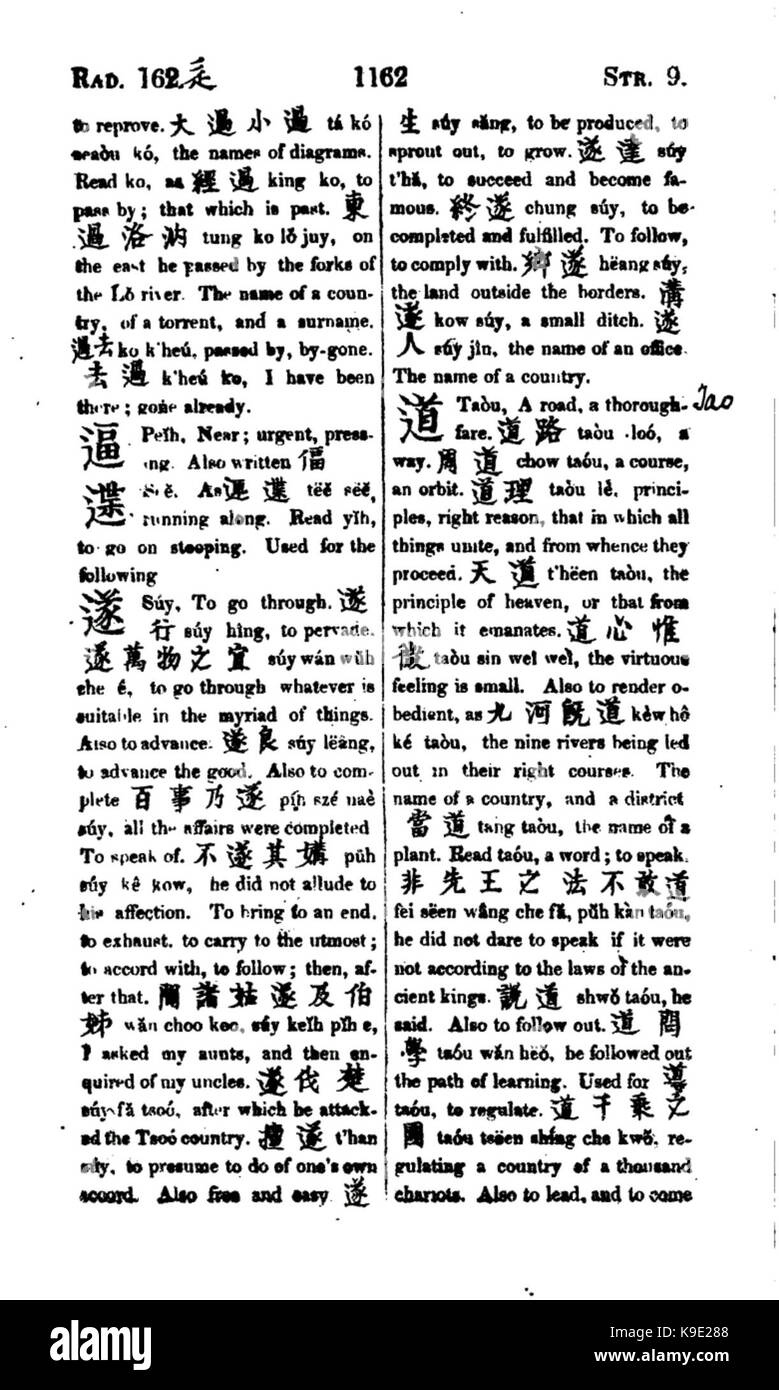 RAD. 162. 辵 1162 STR. 9.
to reprove. 大過小過 tá kó
seaòu kó, the names of diagrams.
Read ko, as 經過 king ko, to
pass by; that which is past. 東
過洛汭 tung ko lǒ juy, on
the east he passed by the forks of
the Lǒ river. The name of a coun-
try, of a torrent, and a surname.
過去 ko k'heú, passed by, by-gone.
去過 k'heú ko, I have been
there; gone already.
逼 Peĭh, Near; urgent, press-
ing. Also written 偪
遆 Sëĕ. As 遆 tëĕ sëĕ,
running along. Read yĭh,
to go on stooping. Used for the
following
遂 Súy, To go through. 遂
行 súy hîng, to pervade.
遂萬物之宜 súy wán wŭh
che é, to go through whatever is
suitable in the myriad of things.
Also to advance. 遂良 súy lëâng,
to advance the good. Also to com-
plete 百事乃遂 pĭh szé naè
súy, all the affairs were completed
To speak of. 不遂其媾 pŭh
súy kê kow, he did not allude to
his affection. To bring to an end,
to exhaust, to carry to the utmost;
to accord with, to follow; then, af-
ter that. 問諸姑遂及伯
姊 wăn choo koo, súy keĭh pĭh e,
I asked my aunts, and then en-
quired of my uncles. 遂伐楚
súy fă tsoó, after which he attack-
ed the Tsoó country. 擅遂 t'han
súy, to presume to do of one's own
accord. Also free and easy 遂
生 súy săng, to be produced, to
sprout out, to grow. 遂達 súy
t'hă, to succeed and become fa-
mous. 終遂 chung súy, to be
completed and fulfilled. To follow,
to comply with. 鄉遂 hëang súy,
the land outside the borders. 溝
遂 kow súy, a small ditch. 遂
人 súy jîn, the name of an office.
The name of a country.
道 Taòu, A road, a thorough- Tao
fare. 道路 taòu loó, a
way. 周道 chow taóu, a course,
an orbit. 道理 taòu lè, princi-
ples, right reason, that in which all
things unite, and from whence they
proceed. 天道 t'hëen taòu, the
principle of heaven, or that from
which it emanates. 道心惟
微 taòu sin weî weî, the virtuous
feeling is small. Also to render o-
bedient, as 九河既道 kèw hô
ké taòu, the nine rivers being led
out in their right courses. The
name of a country, and a district
當道 tang taòu, the name of a
plant. Read taóu, a word; to speak.
非先王之法不敢道
fei sëen wâng che fă, pŭh kàn taóu,
he did not dare to speak if it were
not according to the laws of the an-
cient kings. 說道 shwŏ taóu, he
said. Also to follow out. 道問
學 taóu wăn hëŏ, be followed out
the path of learning. Used for 導
taóu, to regulate. 道千乘之
國 taóu tsëen shíng che kwŏ, re-
gulating a country of a thousand
chariots. Also to lead, and to come
alamy
Image ID: K9E288
www.alamy.com